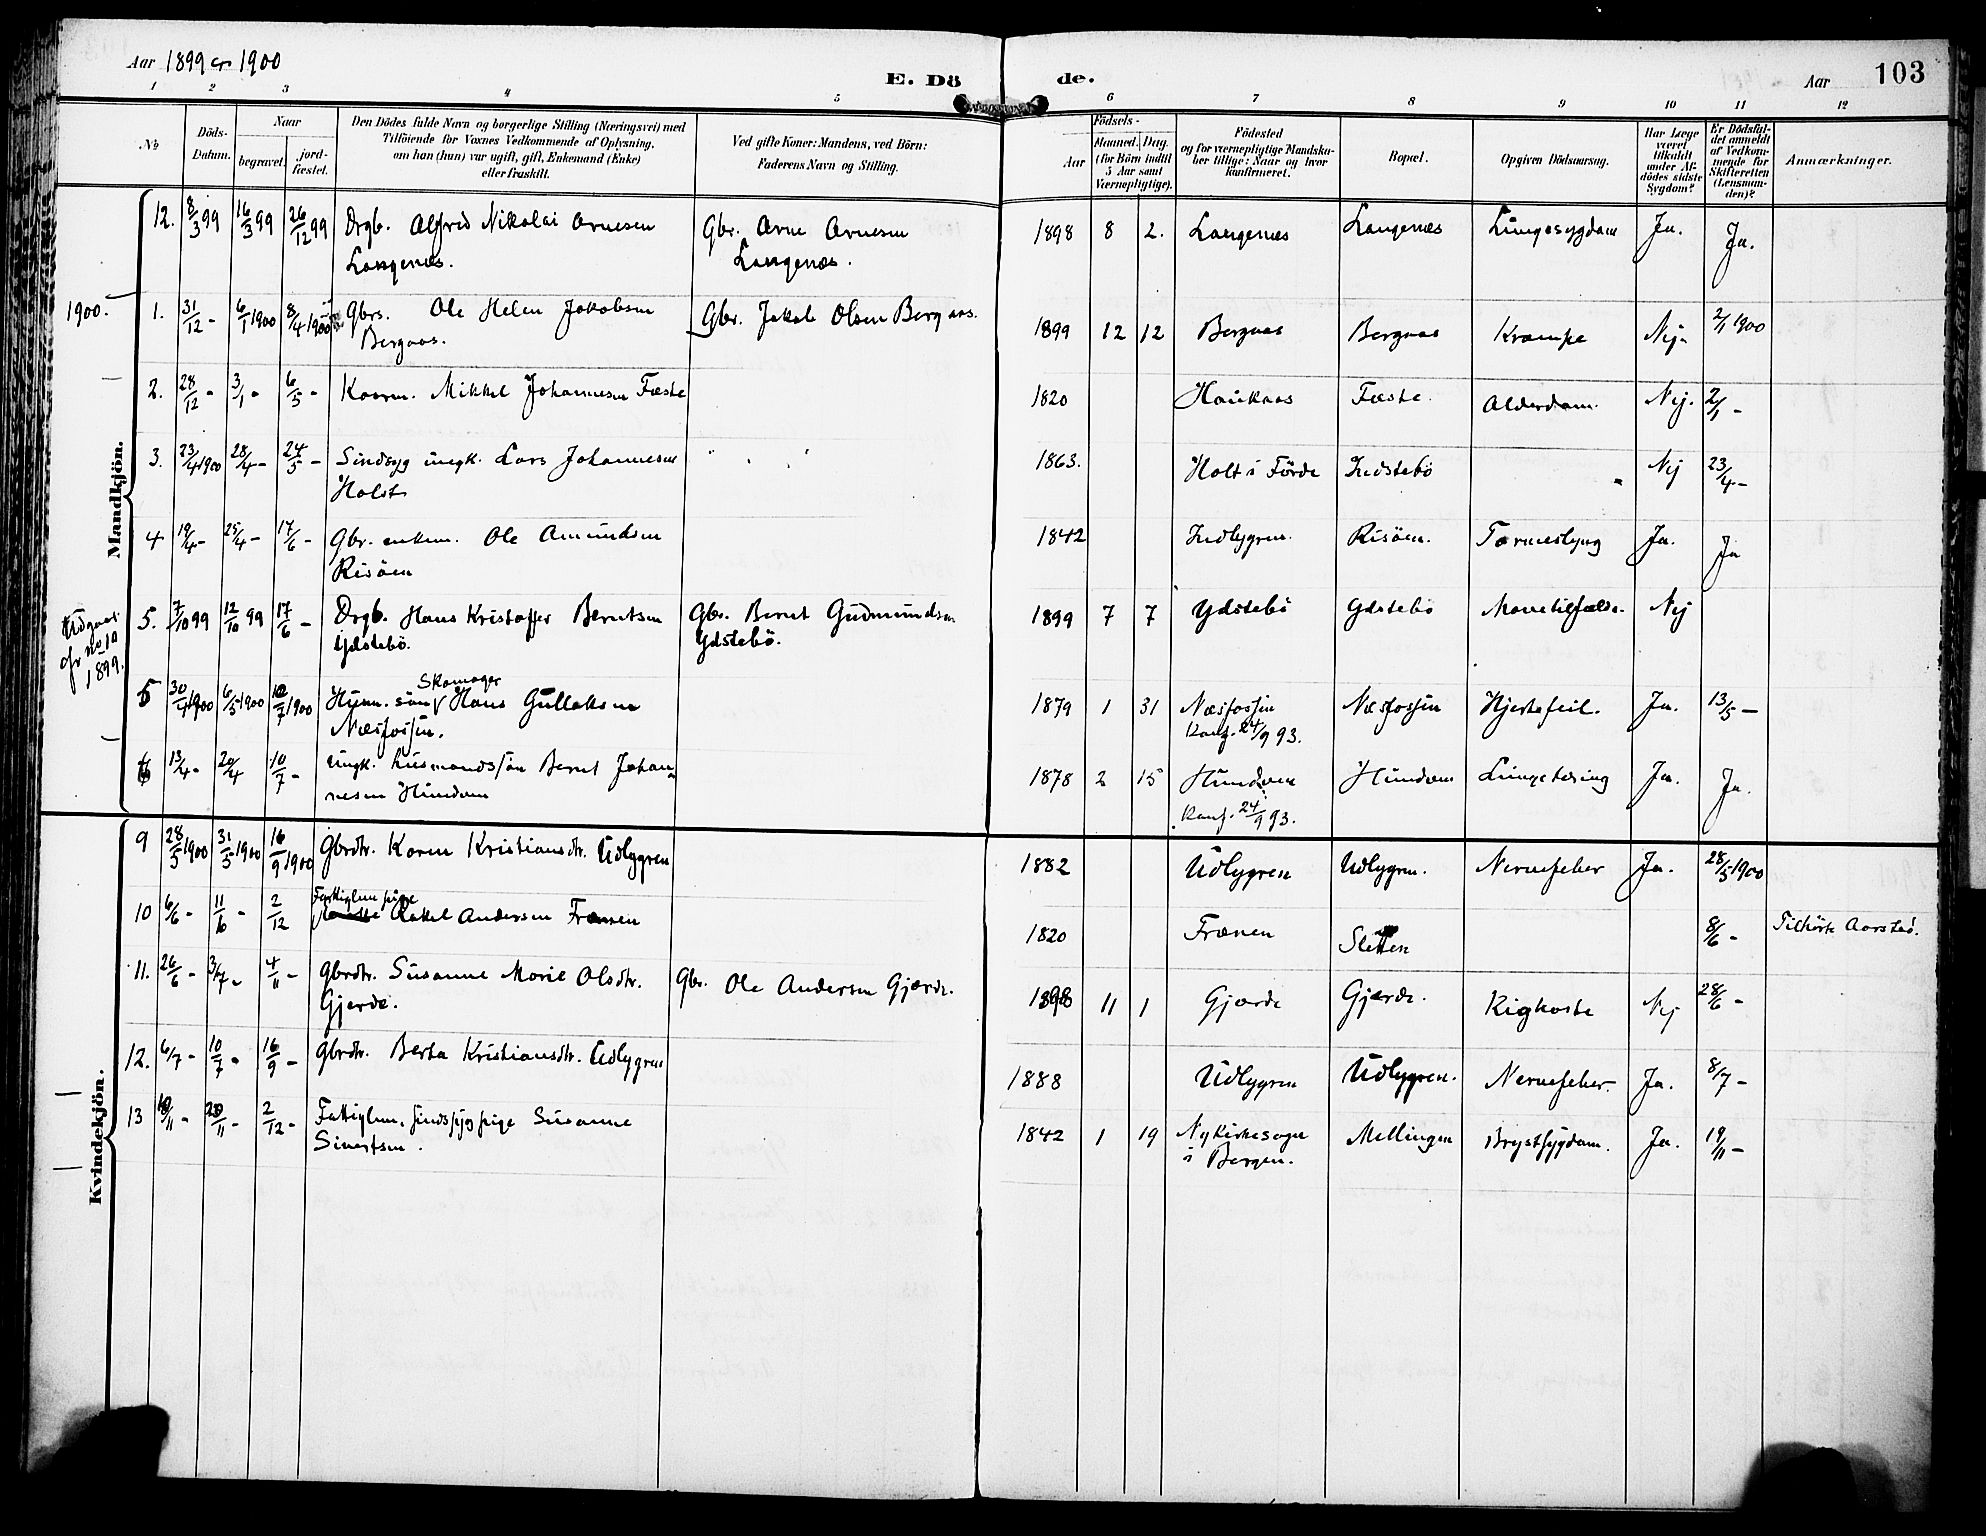 Aar 1899 og 1900
E. Dö de.
Aar 103
1 2 3 4 5 6 7 8 9 10 11 12
No
Döds-Datum.
Naar
begravet.
jord-fæstet.
Den Dödes fulde Navn og borgerlige Stilling (Næringsvei) med
Tilföiende for Voxnes Vedkommende af Oplysning,
om han (hun) var ugift, gift, Enkemand (Enke)
eller fraskilt.
Ved gifte Koner: Mandens, ved Börn:
Faderens Navn og Stilling.
Födsels-
Aar
Maaned. Dag.
(for Börn indtil
5 Aar samt
Værnepligtige).
Födested
og for værnepligtige Mandska-
ber tillige: Naar og hvor
konfirmeret.
Bopæl.
Opgiven Dödsaarsag.
Har Læge
været
tilkaldt
under Af-
dödes sidste
Sygdom?
Er Dödsfal-
det anmeldt
af Vedkom-
mende for
Skifteretten
(Lensman-
den)?
Anmærkninger.
Mandkjön.
12. 8/3 99 16/3 99 26/12 99 Drgb. Alfred Nikolai Arnesen Gbr. Arne Arnesen 1898 8 2. Langenæs Langenæs Lungesygdom Ja. Ja.
Langenæs. Langenæs.
1900. 1. 31/12 - 6/1 1900 8/4 1900 Gbrs. Ole Helen Jakobsen Gbr. Jakob Olsen Bergaas. 1899 12 12 Bergaas Bergaas Krampe Nej- 2/1 1900
Bergaas.
2. 28/12 - 3/1 - 6/5 - Kaarm. Mikkel Johannesen Fæste 1820 Haukaas Fæste. Alderdom. Nej. 2/1 -
3. 23/4 1900 28/4 - 24/5 - Sindsyg ungk. Lars Johannesen 1863. Holt i Förde Indstebö " Nej 23/4 -
Holst
4 19/4 - 25/4 - 17/6 - Gbr. enkem. Ole Amundsen 1842 Indlygren. Risöen. Tarmeslyng Ja. Ja
Risöen
Udgaar
cfr no 10
1899.
5. 7/10 99 12/10 99 17/6 - Drgb. Hans Kristoffer Berntsen Gbr. Bernt Gudmundsen 1899 7 7 Ydstebö Ydstebö Mavetilfælde. Nej
Ydstebö. Ydstebö.
5 30/4 1900 6/5 1900 10/7 1900 Husm. sön Skomager Hans Gullaksen 1879 1 31 Næsfossen Næsfossen Hjertefeil. Ja. 13/5 -
Næsfossen. Konf. 24/9 93.
6 13/4 - 20/4 10/7 - ungk. husmandssön Bernt Johan- 1878 2 15 Hundven Hundven Lungetæring Ja. Ja.
nesen Hundven Konf. 24/9 93.
Kvindekjön.
9 28/5 1900 31/5 1900 16/9 1900 Gbrdtr. Karen Kristiansdtr. Udlygren 1882 Udlygren Udlygren. Nervefeber Ja. 28/5 1900
10 6/6 - 11/6 - 2/12 Fattiglem pige Rakel Andersen Frænen 1820 Frænen Sletten 8/6 - Tilhörte Aarstad.
11. 26/6 - 3/7 - 4/11 - Gbrdtr. Susanne Marie Olsdtr. Gbr. Ole Andersen Gjærde. 1898 11 1 Gjærde Gjærde. Kighoste Nej 28/6 -
Gjerde.
12. 6/7 - 10/7 - 16/9 - Gbrdtr. Berta Kristiansdtr. Udlygren 1888 Udlygren Udlygren. Nervefeber. Ja. 8/7 -
13 /11 - 20/11 - 2/12 - Fattiglem. sindssyg pige Susanne 1842 1 19 Nykirkesogn Mellingen Brystsygdom. Ja. 19/11 -
Sivertsen. i Bergen.